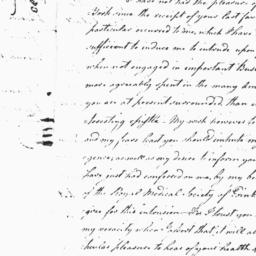 I have not had the pleasure
York since the receipt of your last fav
particular occurred to me, which I have
sufficient to induce me to intrude upon
when not engaged in important Busi
more agreeably spent in the many dom
you are at present surrounded, than
interesting epistle. My wish however to
and my fears lest you should
gence, as well as my desire to inform you
have just had conferred on me, by my
of the Royal Medical Society of Edinb
give for this intrusion. I trust you
my veracity when I assert that, it will al
sincere pleasure to hear of your health